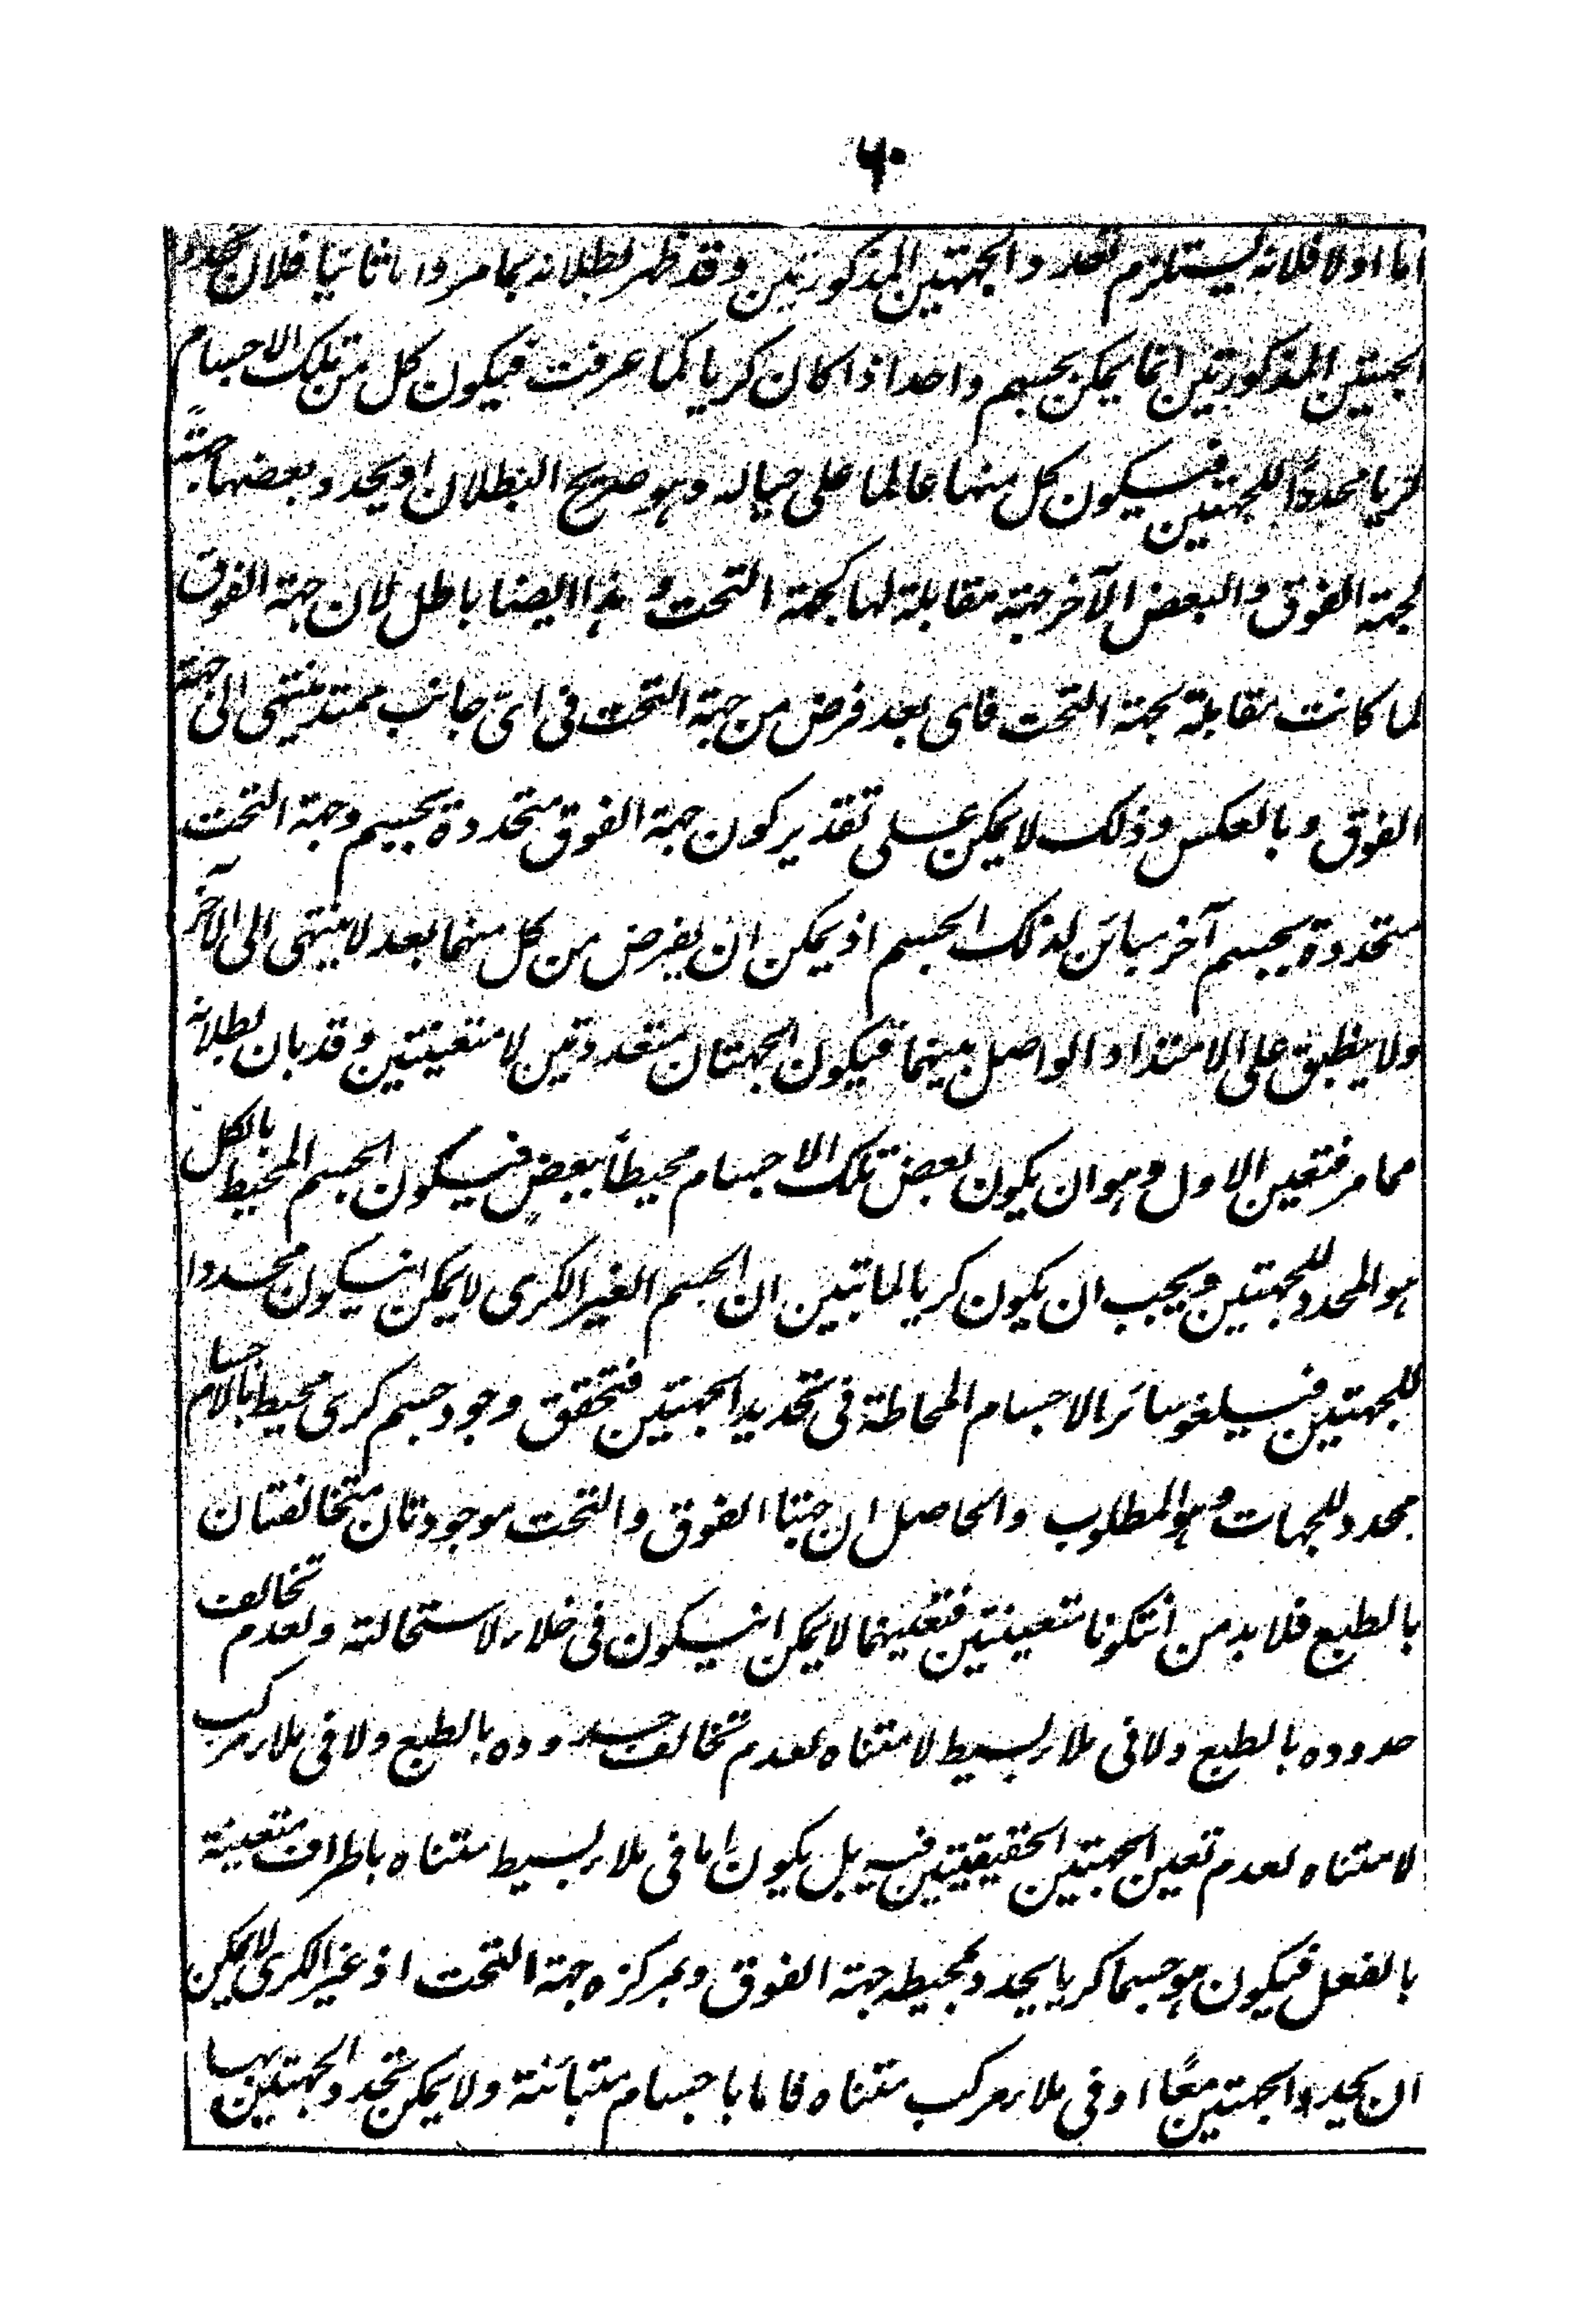 ۶۰
اما اولا فلانه يستلزم تعدد الجهتين المذكورتين وقد ظهر بطلانه بما مر واما ثانيا فلان تحدد
الجهتين المذكورتين انما يمكن بجسم واحد اذا كان كريا كما عرفت فيكون كل من تلك الاجسام
كريا محددا للجهتين فيكون كل منها عالما على حياله وهو صريح البطلان او يحدد بعضها جهةً
كجهة الفوق والبعض الآخر جهة مقابلة لها كجهة التحت وهذا ايضا باطل لان جهة الفوق
لما كانت مقابلة لجهة التحت فاى بعد فرض من جهة التحت فى اىّ جانب ممتد ينتهى الى جهة
الفوق وبالعكس وذلك لا يمكن على تقدير كون جهة الفوق متحددة بجسم وجهة التحت
متحددة بجسم آخر مبائن لذلك الجسم اذ يمكن ان يفرض من كل منهما بعد لا ينتهى الى الآخر
ولا ينطبق على الامتداد الواصل بينهما فيكون الجهتان متعددتين لا متعينتين وقد بان بطلانه
مما مر فتعين الاول وهو ان يكون بعض تلك الاجسام محيطاً ببعض فيكون الجسم المحيط بالكل
هو المحدد للجهتين ويجب ان يكون كريا لما تبين ان الجسم الغير الكرى لا يمكن ان يكون محددا
للجهتين فيلغو سائر الاجسام المحاطة فى تحديد الجهتين فتحقق وجود جسم كرى محيط بالاجسام
محدد للجهات وهو المطلوب والحاصل ان جهتا الفوق والتحت موجودتان متخالفتان
بالطبع فلا بد من ان تكونا متعينتين فتعينهما لا يمكن ان يكون فى خلاء لاستحالته ولعدم تخالف
حدوده بالطبع ولا فى ملاء بسيط لا متناه لعدم تخالف حدوده بالطبع ولا فى ملاء مركب
لا متناه لعدم تعين الجهتين الحقيقيتين فيه بل يكون اما فى ملاء بسيط متناه باطراف متعينة
بالفعل فيكون هو جسما كريا يحدد بمحيطه جهة الفوق وبمركزه جهة التحت اذ غير الكرى لا يمكن
ان يحدد الجهتين معًا او فى ملاء مركب متناه فاما باجسام متبائنة ولا يمكن تحدد الجهتين بها